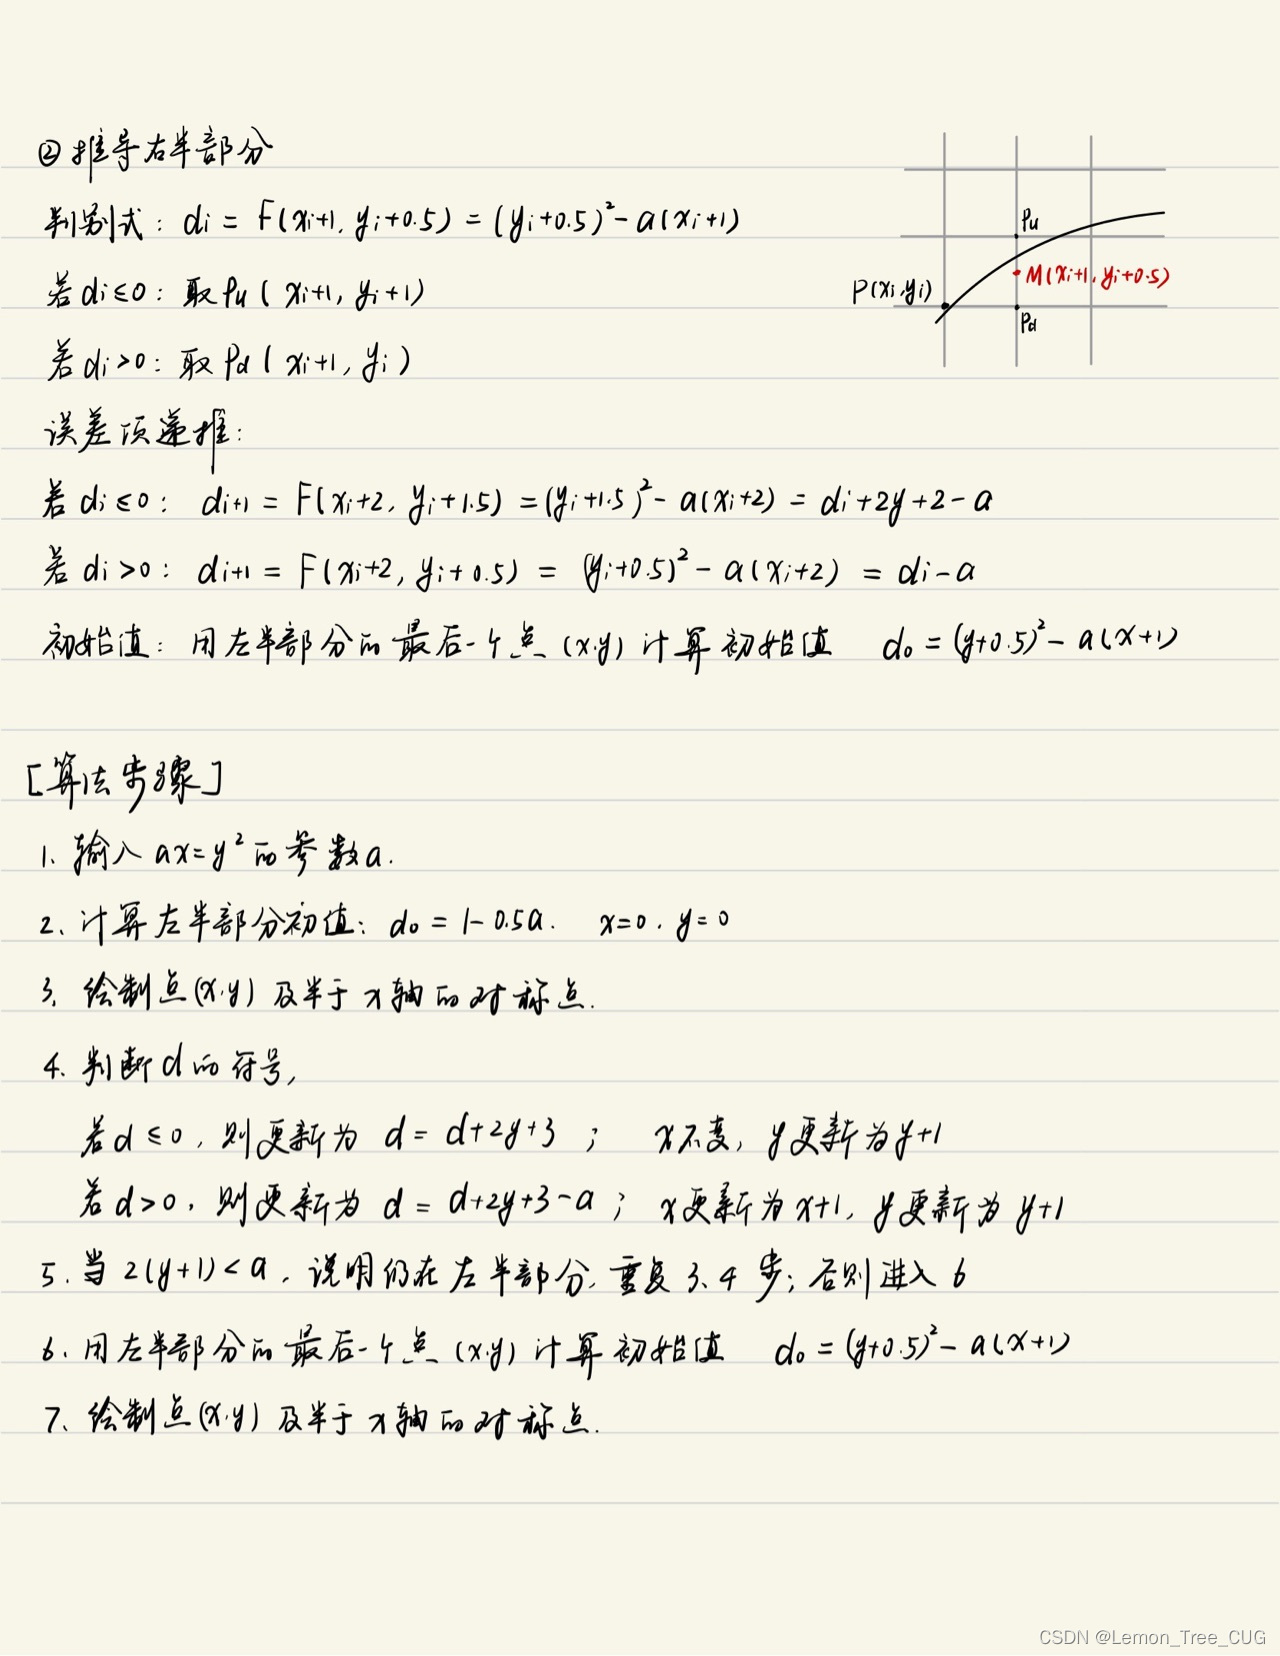 ②推导右半部分
判别式: di = F(xi+1, yi+0.5) = (yi+0.5)² - a(xi+1)
若di≤0: 取Pu( xi+1, yi+1)
若di>0: 取Pd( xi+1, yi)
Pu
M(xi+1, yi+0.5)
P(xi,yi)
Pd
误差项递推:
若di≤0: di+1 = F(xi+2, yi+1.5) = (yi+1.5)² - a(xi+2) = di+2y+2-a
若di>0: di+1 = F(xi+2, yi+0.5) = (yi+0.5)² - a(xi+2) = di-a
初始值: 用左半部分的最后一个点 (x,y) 计算初始值 d0 = (y+0.5)² - a(x+1)
[算法步骤]
1. 输入 ax=y² 的参数a.
2. 计算左半部分初值: d0 = 1-0.5a. x=0, y=0
3. 绘制点(x,y) 及半于x轴的对称点.
4. 判断d的符号,
若d≤0, 则更新为 d= d+2y+3 ; x不变, y更新为y+1
若d>0, 则更新为 d= d+2y+3-a ; x更新为x+1, y更新为y+1
5. 当2(y+1)<a, 说明仍在左半部分, 重复3、4步; 否则进入6
6. 用左半部分的最后一个点 (x,y) 计算初始值 d0 = (y+0.5)² - a(x+1)
7. 绘制点(x,y) 及半于x轴的对称点.
CSDN @Lemon_Tree_CUG